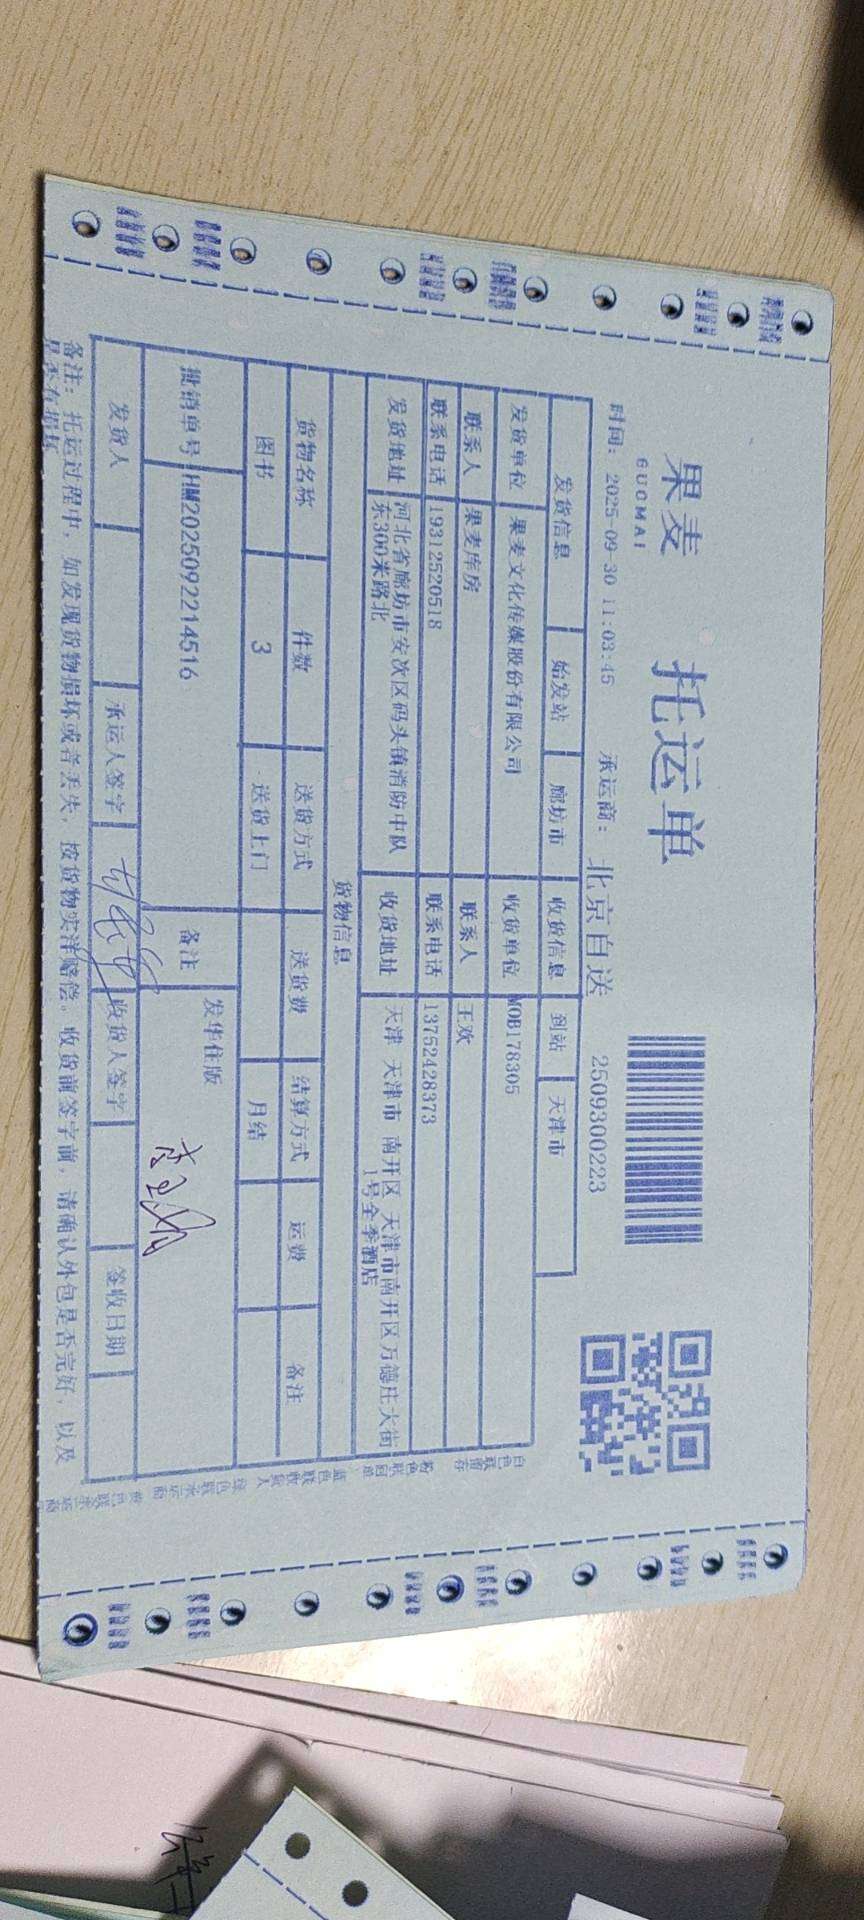 果麦
GUOMAI
托运单
时间: 2025-09-30 11:03:45 承运商: 北京自送 2509300223
发货信息 始发站 廊坊市 收货信息 到站 天津市
发货单位 果麦文化传媒股份有限公司 收货单位 MOB178305
联系人 果麦库房 联系人 王欢
联系电话 19312520518 联系电话 13752428373
发货地址 河北省廊坊市安次区码头镇消防中队 收货地址 天津 天津市 南开区 天津市南开区万德庄大街
东300米路北 1号全季酒店
货物信息
货物名称 件数 送货方式 送货费 结算方式 运费 备注
图书 3 送货上门 月结
批销单号 HM2025092214516 备注 发华住版
发货人 承运人签字 收货人签字 签收日期
备注: 托运过程中, 如发现货物损坏或者丢失, 按货物实洋赔偿。收货前签字前, 请确认外包是否完好, 以及
是否有损坏
白色联留存 粉色联回单 蓝色联收货人